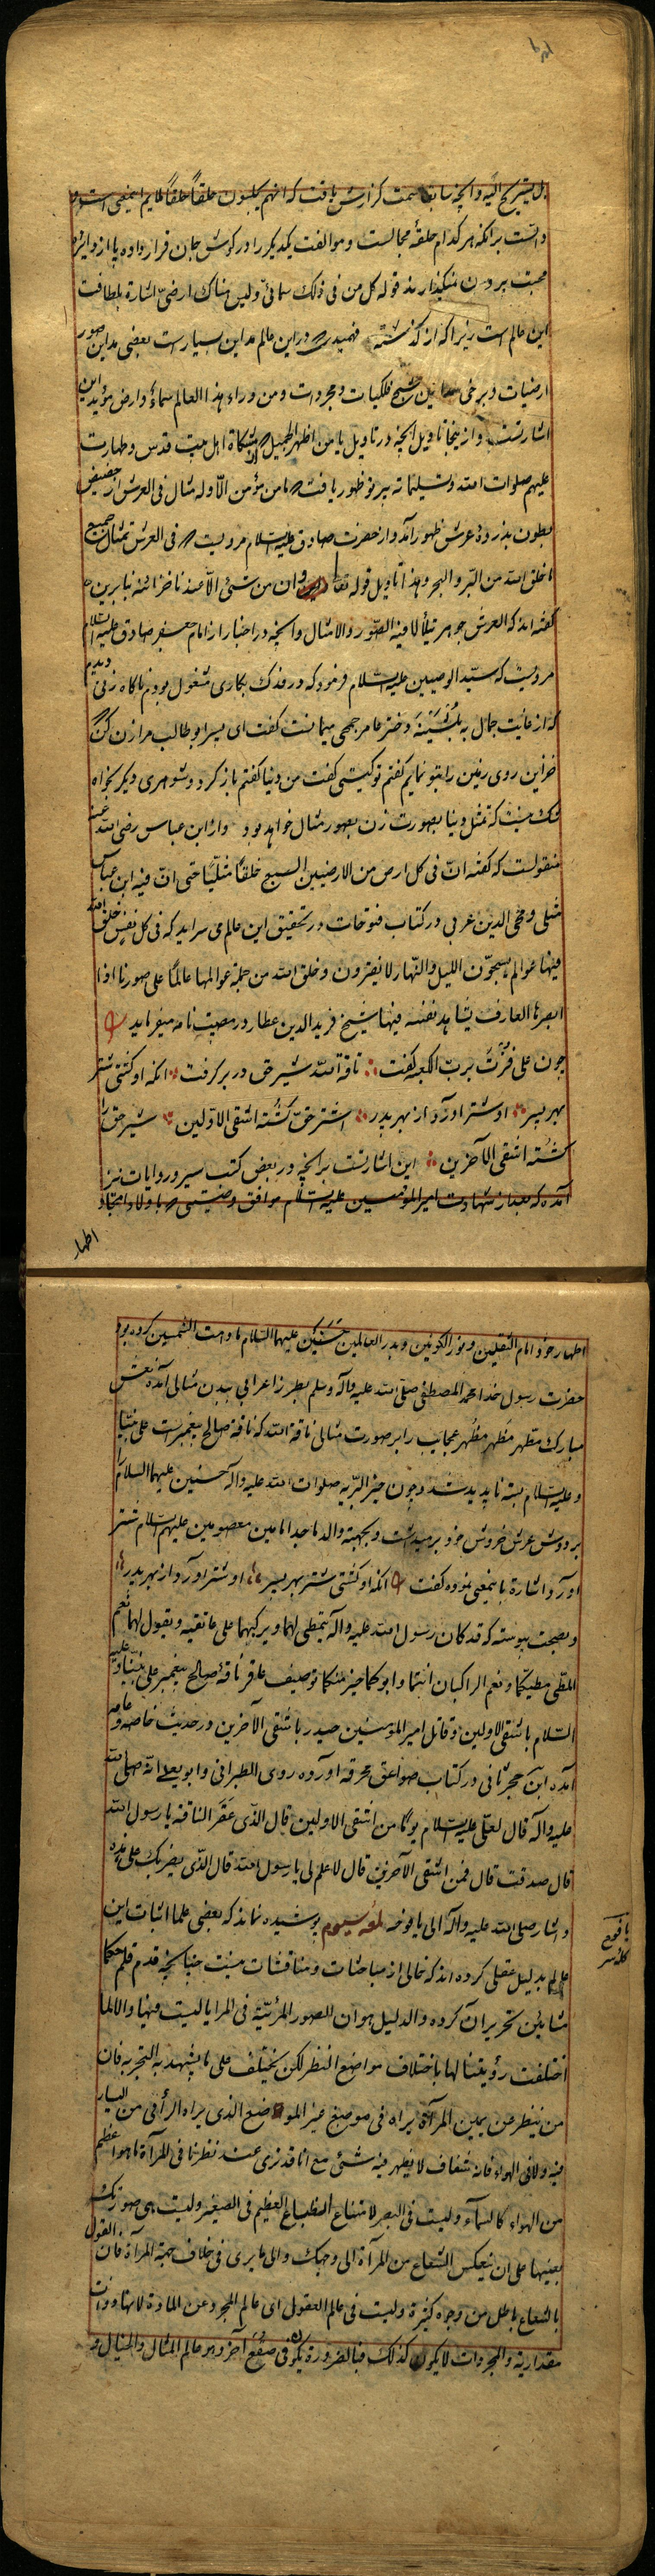 بل یستریح الیه و آنچه سابقا سمت گزارش یافت که انهم یجلسون حلقاً حلقاً ملایم اینمعنی است
دالست بر انکه هر کدام حلقهٔ مجالست و موالفت یکدیگر را در گوش جان قرار داده پا از دایرهٔ
محبت بیرون نمیگذارند قوله کل من فی ذلک سمائیّ و لیس هناک ارضیّ اشارة بلطافت
این عالم است زیرا که از گذشته فهمیدی در این عالم مداین بسیار است بعضی مداین صور
ارضیات و برخی مداین فلکیات و مجردات و من وراء هذا العالم سماءٌ و ارض مؤید این
اشارتست و از ینجا تاویل آنچه در تاویل یا من اظهر الجمیل از مشکاة اهل بیت قدس و طهارت
علیهم صلوات الله و تسلیماته پرتو ظهور یافت ما من مؤمن الّا و له مثال فی العرش از حضیض
بطون بذروهٔ عرش ظهور آمد و از حضرت صادق علیه السلام مرویست فی العرش تمثال جمیع
ما خلق الله من البرّ و البحر و هذا تاویل قوله و ان من شیء الّا عندنا خزائنه بنا برین
گفته اند که العرش جوهر یتلألأ فیه الصّور و الامثال و آنچه در اخبار از امام جعفر صادق علیه السلام
مرویست که سیّد الوصیین علیه السلام فرمود که در فدک بکاری مشغول بودم ناگاه زنی دیدم
که از غایت جمال به بثینة دختر عامر جمحی میمانست گفت ای پسر ابو طالب مرا زن کن
خزاین روی زمین را بتو نمایم گفتم تو کیستی گفت من دنیا گفتم باز گرد و شوهری دیگر بخواه
شک نیست که تمثل دنیا بصورت زن بصور مثال خواهد بود و از ابن عباس رضی الله عنه
منقولست که گفته انّ فی کل ارض من الارضیین السبع خلقاً مثلنا حتی انّ فیه ابن عباس
مثلی و محی الدین عربی در کتاب فتوحات در تحقیق این عالم می سراید که فی کل نفس خلق الله
فیها عوالم یسبحون اللیل و النّهار لا یفترون و خلق الله من جملة عوالمها عالماً علی صورنا اذا
ابصرها العارف یشاهد نفسه فیها شیخ فرید الدین عطار در مصیبت نامه میفرماید
چون علی فزتُ بربّ الکعبه گفت ناقة الله شیر حق در بر گرفت آنکه او کشتی شتر
بهر پسر او شتر آورد از بهر پدر اشتر حق کشته اشقی الاولین شیر حق را
کشته اشقی الآخرین این اشارتست بر آنچه در بعضی کتب سیر و روایات نیز
آمده که بعد از شهادت امیر المؤمنین علیه السلام موافق وصیتی با ولاد امجاد
اظهار
اظهار خود امام الثقلین و نور الکونین و بدر العالمین حسنین علیهما السلام ما دامت الشمسین کرده بود
حضرت رسول خدا محمد المصطفی صلی الله علیه و آله و سلم بطرز اعرابی ببدن مثالی آمده نعش
مبارک مطهر مَظهر مُظهر عجایب را بر صورت مثالی ناقة الله که ناقه صالح پیغمبر است علی نبیّنا
و علیه السلام بسته ناپدید شد و چون خیر البریه صلوات الله علیه و آله حسنین علیهما السلام
بر دوش عرش خروش خود بر میداشت و بجهته والد ماجد امامین معصومین علیهم السلام شتر
آورد اشارة باینمعنی نموده گفت آنکه او کشتی شتر بهر پسر او شتر آورد از بهر پدر
و بصحت پیوسته که قد کان رسول الله علیه و آله یتمطی لهما و یرکبهما علی عاتقیه و یقول لهما نعم
المطی مطیکما و نعم الراکبان انتما و ابوکما خیر منکما توصیف عاقر ناقهٔ صالح پیغمبر علی نبیّنا و علیه
السّلام باشقی الاولین و قاتل امیر المؤمنین حیدر باشقی الآخرین در حدیث خاصه و عامه
آمده ابن حجر ثانی در کتاب صواعق محرقه آورده روی الطبرانی و ابو یعلی انّه صلی الله
علیه و آله قال لعلیّ علیه السلام یوماً من اشقی الاولین قال الذی عَقَر الناقة یا رسول الله
قال صدقت قال فمن اشقی الآخرین قال لا علم لی یا رسول الله قال الذی یضربک علی هذه
و اشار صلی الله علیه و آله الی یافوخه لمعه سیوم پوشیده نماند که بعضی علما اثبات این
عالم بدلیل عقلی کرده اند که خالی از مباحثات و مناقشات نیست چنانچه قدم قلم حکما
مشایین تحریر آن کرده و الدلیل هو ان للصور المرئیّة فی المرایا لیست فیها و الا لما
اختلفت رؤیتنا لها باختلاف مواضع النظر لکن یختلف علی ما یشهد به التجربه فان
من ینظر عن یمین المرآة یراه فی موضع غیر الموضع الذی یراه الرائی من الیسار
فیه و لا فی الهواء فانه شفاف لا یظهر فیه شئ مع انا قد نری عند نظرنا فی المرآة ما هو اعظم
من الهواء کالسماء و لیست فی البصر لامتناع انطباع العظیم فی الصغیر و لیست هی صورتک
بعینها علی ان ینعکس الشعاع من المرآة الی وجهک و الی ما یری فی خلاف جهة المرآة فان القول
بالشعاع باطل من وجوه کثیرة و لیست فی عالم العقول ای عالم المجرد عن المادة لانها ذوات
مقداریة و المجردات لا یکون کذلک فبالضرورة یکون فی صقع آخر و هو عالم المثال و الخیال و
یافوخ
کله سر